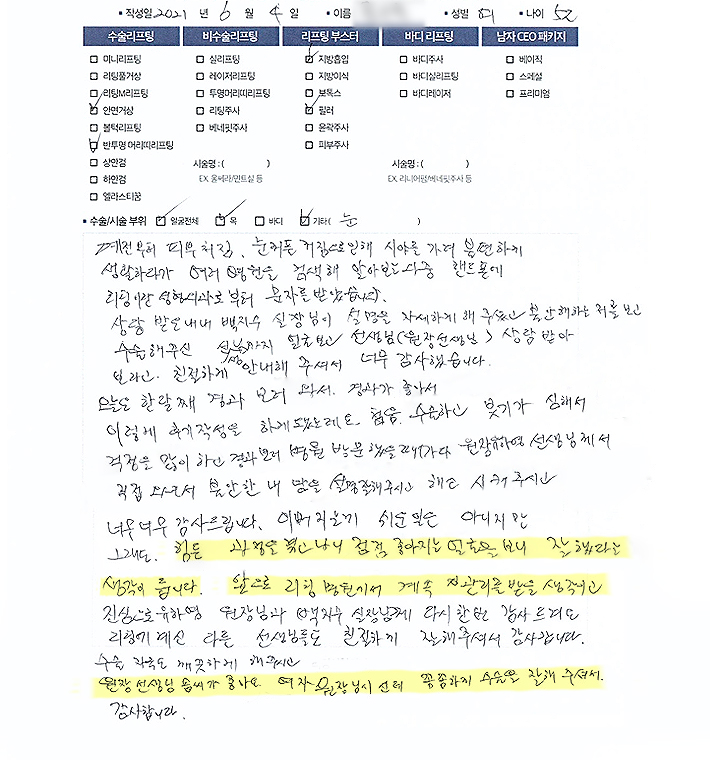 • 작성일 2021 년 6 월 4 일 • 이름 • 성별 여 • 나이 52
수술리프팅 비수술리프팅 리프팅 부스터 바디 리프팅 남자 CEO 패키지
미니리프팅 실리프팅 지방흡입 바디주사 베이직
리팅풀거상 레이저리프팅 지방이식 바디실리프팅 스페셜
리팅M리프팅 투명머리띠리프팅 보톡스 바디레이저 프리미엄
안면거상 리팅주사 필러
볼턱리프팅 베네핏주사 윤곽주사
반투명 머리띠리프팅 피부주사
상안검 시술명 : ( ) 시술명 : ( )
하안검 EX. 울쎄라/민트실 등 EX. 리니어펌/베네핏주사 등
엘라스티꿈
• 수술/시술 부위 얼굴전체 목 바디 기타 ( 눈 )
예전부터 피부처짐, 눈꺼풀 처짐으로 인해 시야를 가려 불편하게
생활하다가 여러 병원을 검색해 알아보는 다중 핸드폰에
리팅이란 성형외과로부터 문자를 받았습니다.
상담 받으내내 백지수 실장님이 설명을 자세하게 해 주셨고 불안해하는 저를 보고
수술해주신 보고 선생님(원장선생님) 상담 받아
보라고. 친절하게 안내해 주셔서 너무 감사했습니다.
오늘은 한달째 경과 보러 와서. 경과가 좋아서
이렇게 후기작성을 하게 되었는데요. 처음 수술하고 붓기가 심해서
걱정을 많이 하고 경과보러 병원 방문했을때마다 원장유하영 선생님께서
직접 오셔서 불안한 내 맘을 설명잘해주시고 해소 시켜 주시고
너무너무 감사드립니다. 쉬운일은 아니지만
그래도. 힘든 과정을 겪고나니 점점 좋아지는 얼굴을 보니 잘 했다는
생각이 듭니다. 앞으로 리팅 병원에서 계속 관리를 받을 생각이고
진심으로 유하영 원장님과 백지수 실장님께 다시한번 감사드려요
리팅에 계신 다른 선생님들도 친절하게 잘해주셔서 감사합니다.
수술 자국도 깨끗하게 해주시고
원장 선생님 솜씨가 좋아요 여자 원장님시 선지 꼼꼼하게 수술을 잘해 주셔서.
감사합니다.